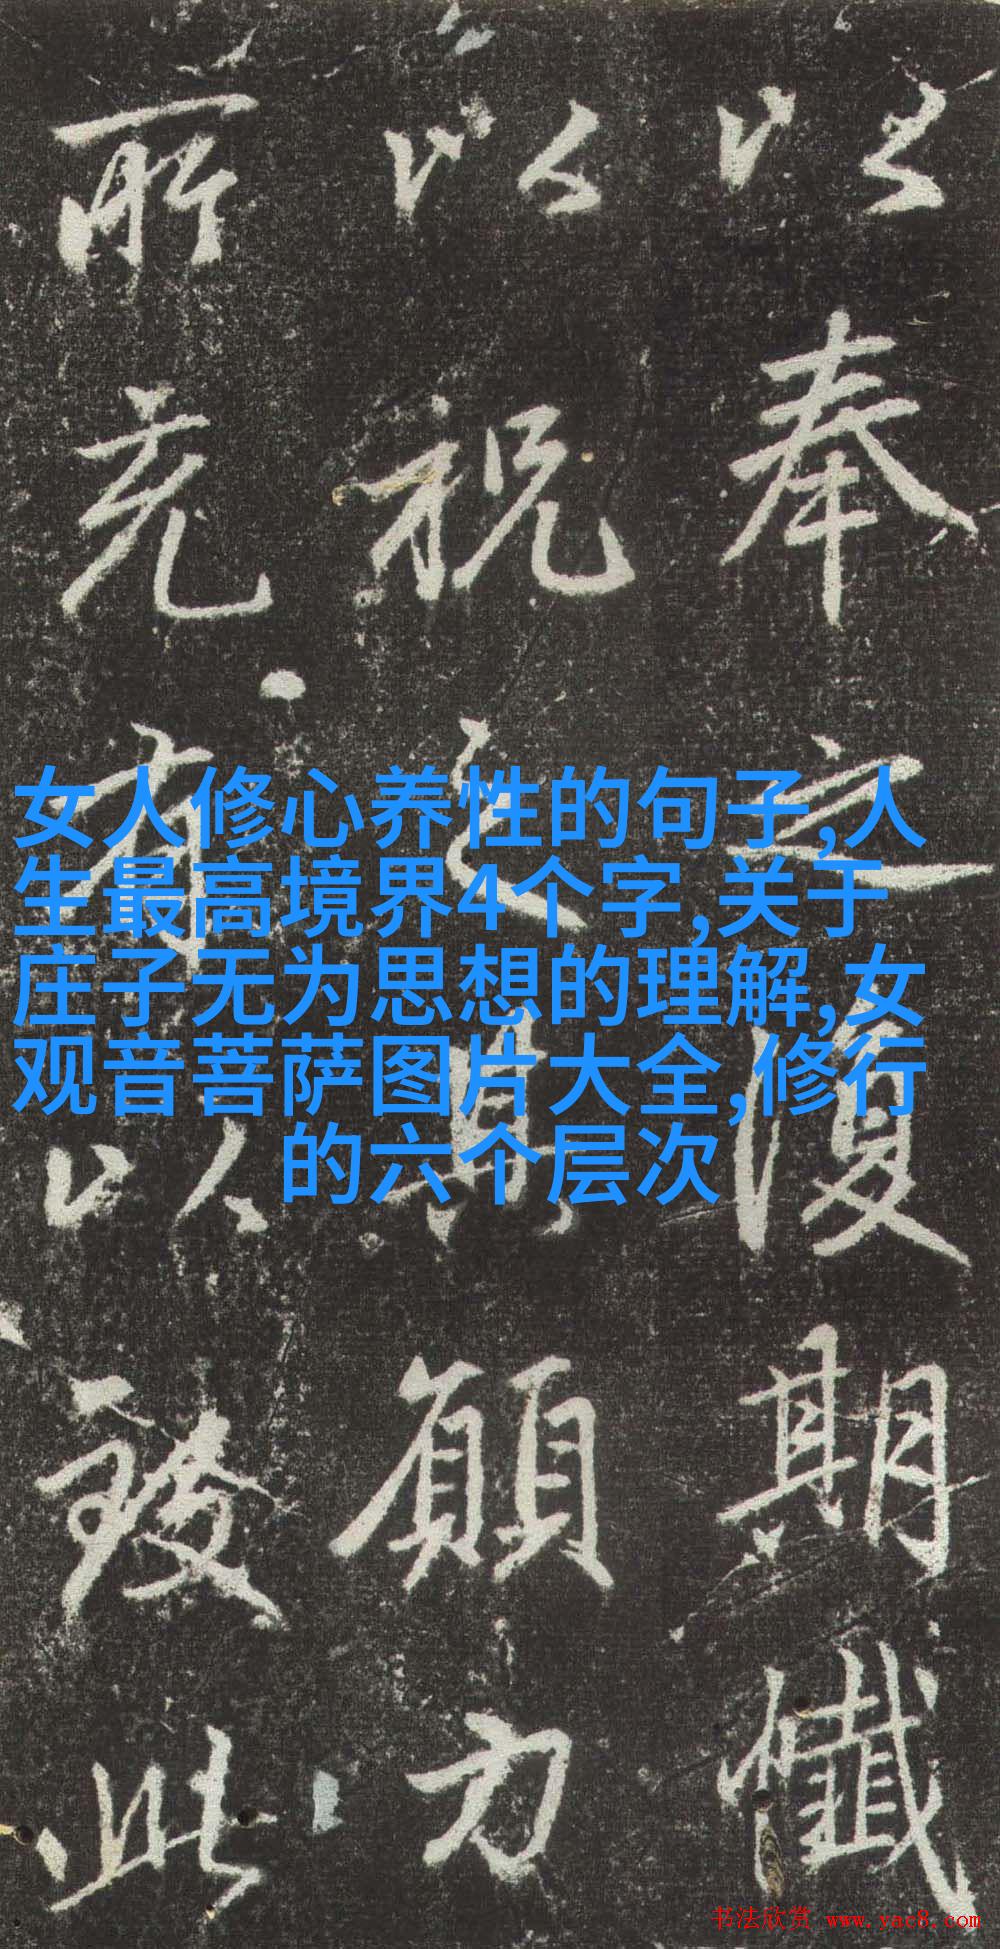 以奉之復期懺
以祝願力
所充以致此
女人修心养性的句子,人
生最高境界4个字,关于
庄子无为思想的理解,女
观音菩萨图片大全,修行
的六个层次
书法欣赏 www.yac8.com